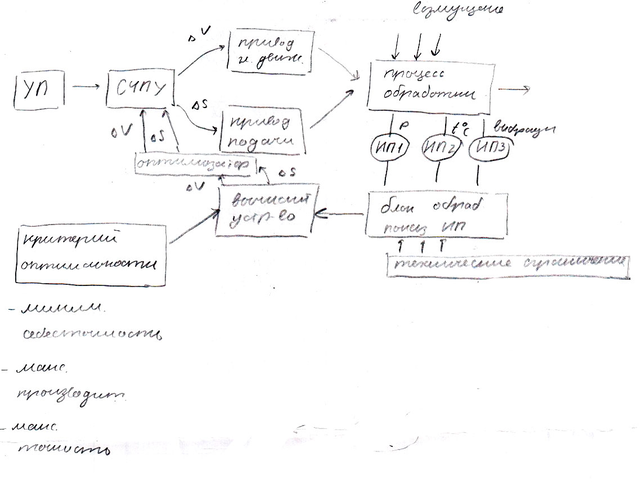 возмущение
УП
СЧПУ
ΔV
привод
гл. движ.
ΔS
привод
подачи
процесс
обработки
P
t°c
вибрации
ИП1
ИП2
ИП3
ΔV
ΔS
оптимизатор
ΔV
ΔS
вычислит
устр-во
блок обраб
показ ИП
технические ограничение
критерий
оптимальности
- миним.
себестоимость
- макс.
производит.
- макс.
точность